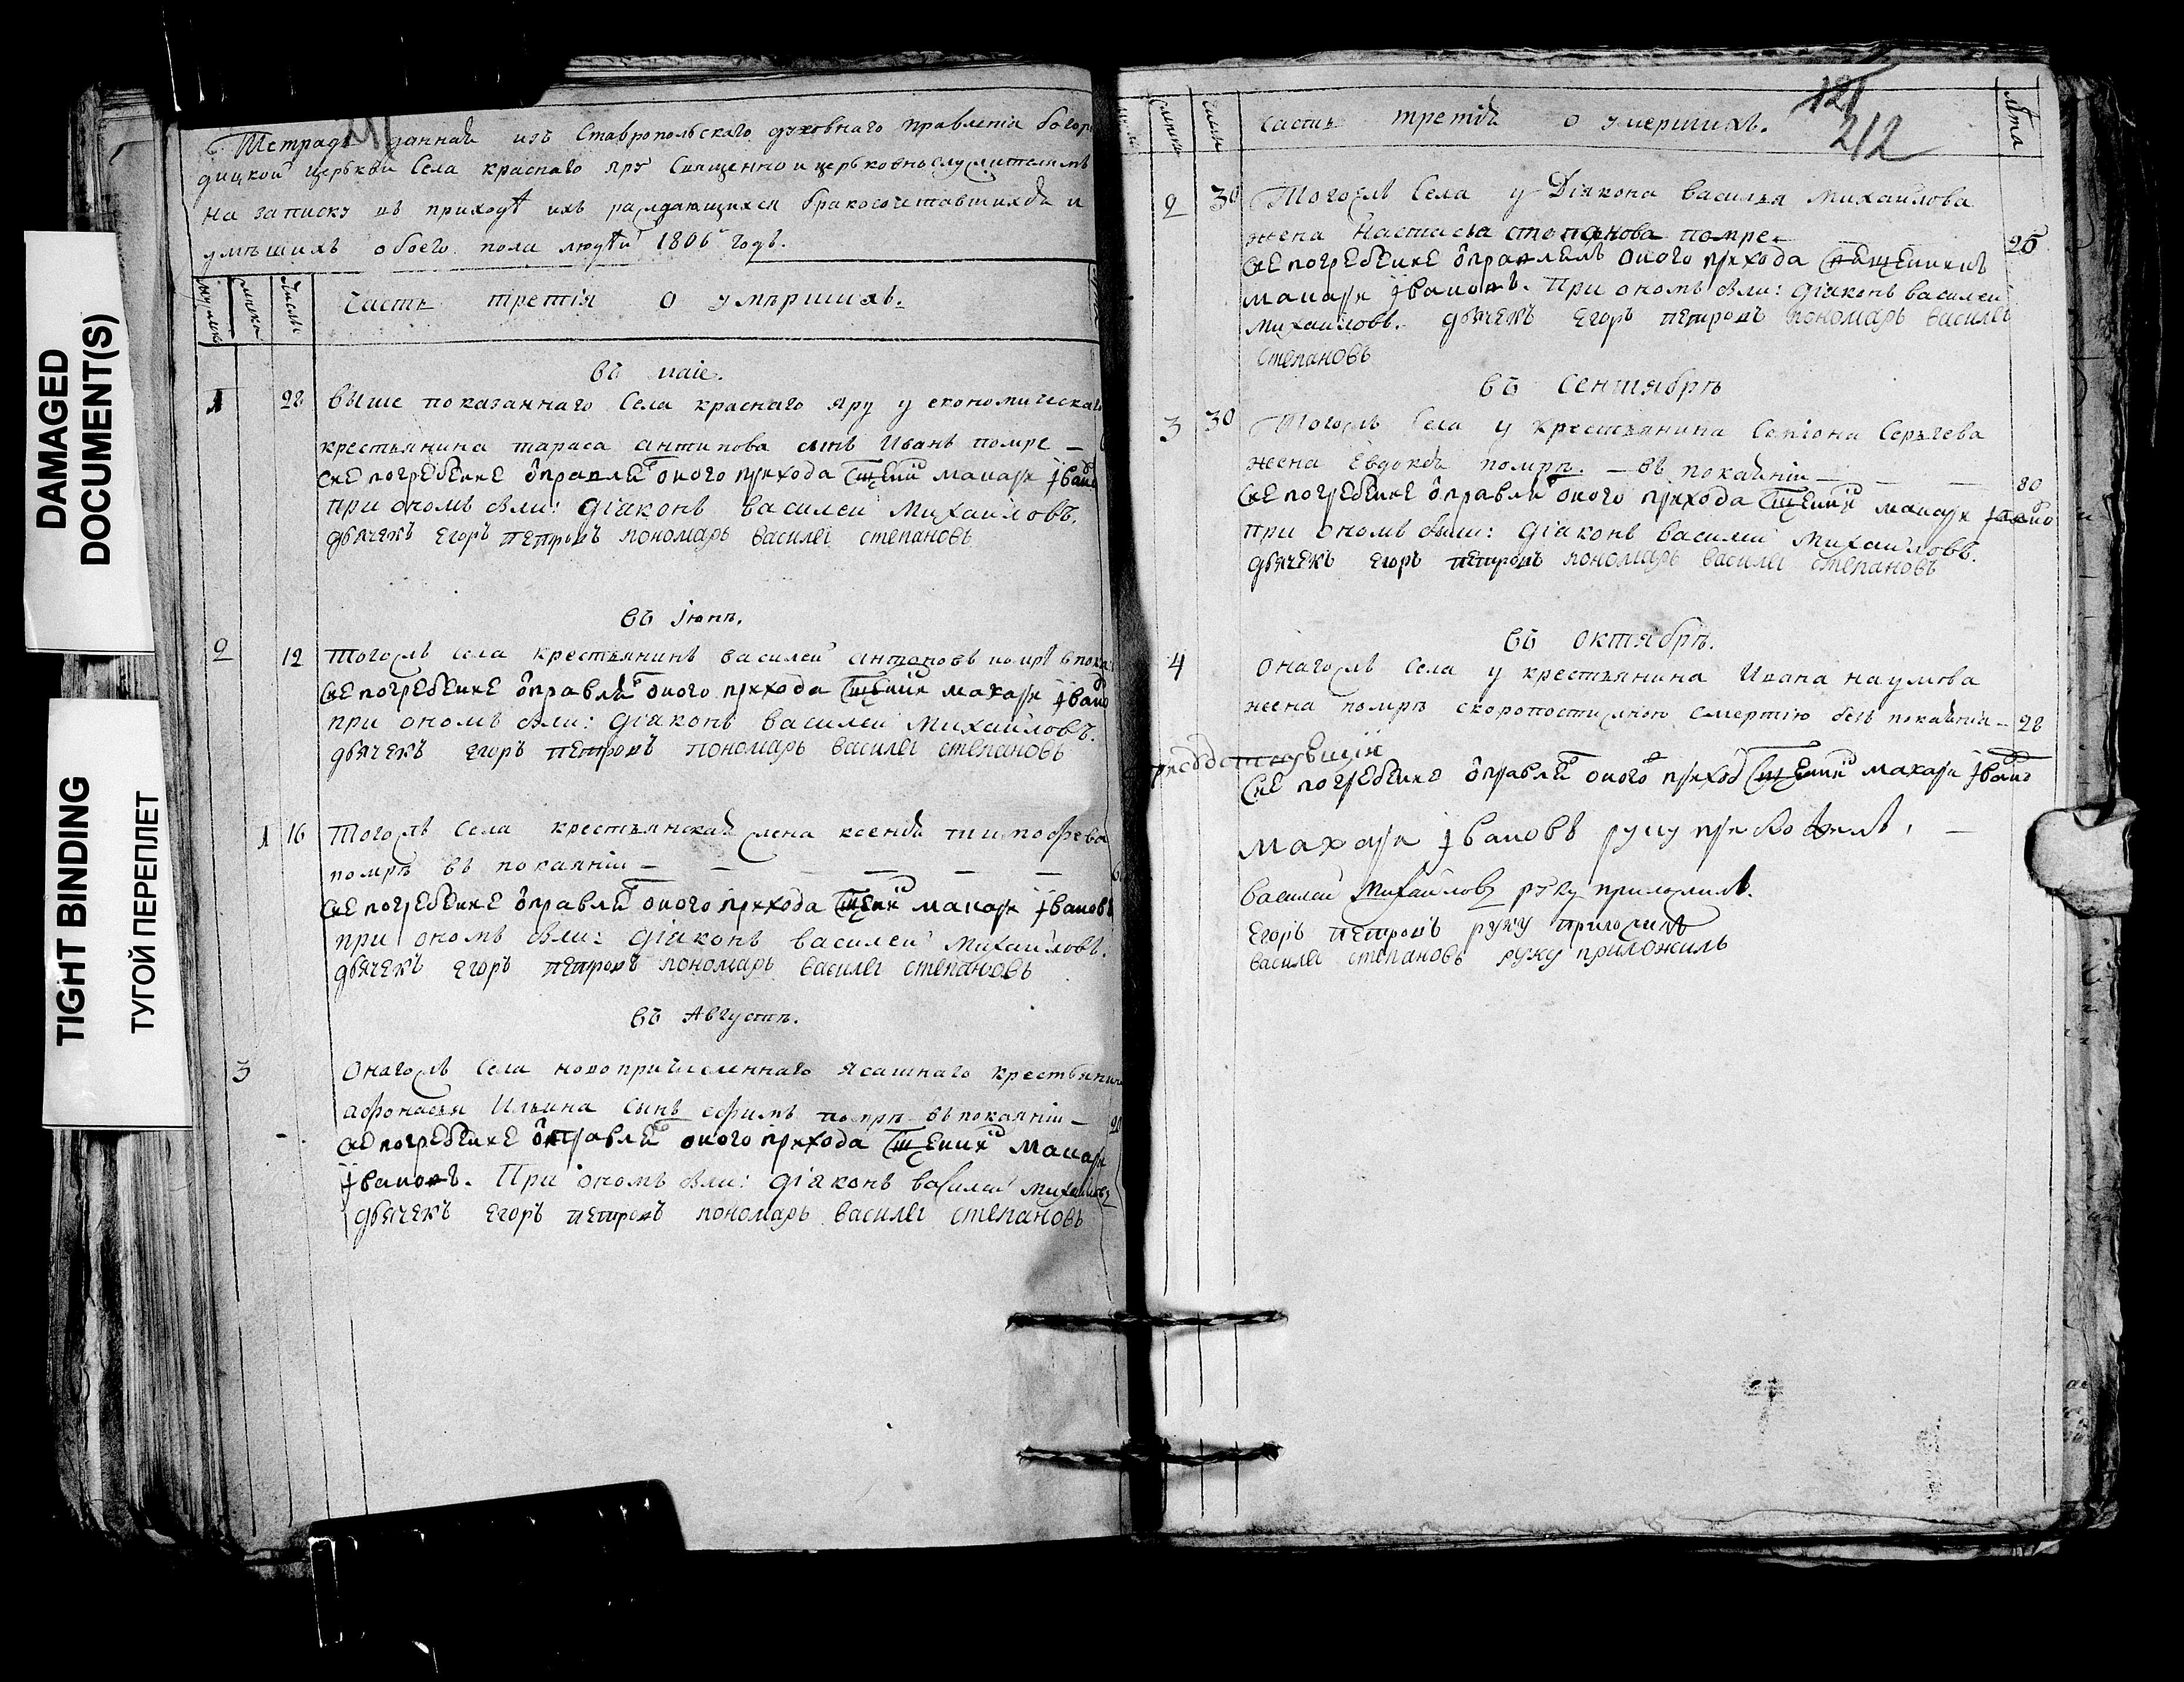 DAMAGED
DOCUMENT(S)
TIGHT BINDING
ТУГОЙ ПЕРЕПЛЕТ
Тетрадь данная изъ Ставропольскаго духовнаго правленія богоро
дицкой церькви Села краснаго яру Священно и церьковнослужителямъ
на записку въ приходѣ ихъ раждающихся бракосочетавшихся и
умершихъ обоего пола людѣй 1806 годъ.
числы
Часть третія о умѣршихъ.
въ маіе.
1 22 выше показаннаго Села краснаго яру у економическаго
крестьянина тараса антипова сынъ Иванъ помре
сие погребение ѻправлялъ оного прихода сщенник макари іванов
при ономъ были: діаконъ василеи Михаиловъ.
дьячекъ егоръ петровъ пономарь василеи степановъ
въ іюнѣ.
2 12 тогожъ села крестьянинъ василей антоновъ помрѣ в пока
сие погребение ѻправлял оного прихода сщенник макари іванов
при ономъ были: діаконъ василеи Михаиловъ.
дьячекъ егоръ петровъ пономарь василеи степановъ
1 16 тогожъ Села крестьянская жена ксенья тимофеева
помрѣ въ покаяніи
сие погребение ѻправлял оного прихода сщенник макари івановъ
при ономъ были: діаконъ василеи Михаиловъ.
дьячекъ егоръ петровъ пономарь василеи степановъ
въ Августѣ.
3 Онагожъ Села новопричисленнаго ясашнаго крестьянина
афонасья Ильина сынъ ефимъ помрѣ въ покаяніи
сие погребение ѻтправлял оного прихода сщенник макари
івановъ. При ономъ были: діаконъ василеи Михаиловъ
дьячекъ егоръ петровъ пономарь василеи степановъ
121
212
числы часть третія о умершихъ. лѣта
2 30 Тогожъ Села у Діякона василья Михаилова
жена Настасья степанова помре. 25
сие погребение ѻправлялъ оного прихода священникъ
макари івановъ. При ономъ были: діаконъ василеи
Михаиловъ. дьячекъ егоръ петровъ пономарь василеи
степановъ
въ Сентябрѣ
3 30 Тогожъ Села у крестьянина Сергѣева
жена Евдокья помрѣ. въ покаяніи 80
сие погребение ѻправлял оного прихода сщенник макари іванов
при ономъ были: діаконъ василеи Михаиловъ.
дьячекъ егоръ петровъ пономарь василеи степановъ
въ Октябрѣ.
4 Онагожъ Села у крестьянина Ивана наумова
жена помрѣ скоропостижною смертію безъ покаянія 22
сие погребение ѻправлял оного приход сщенник макари іванов
макари івановъ руку приложилъ,
василеи Михаиловъ руку приложилъ.
Егоръ петровъ руку приложилъ
василеи степановъ руку приложилъ